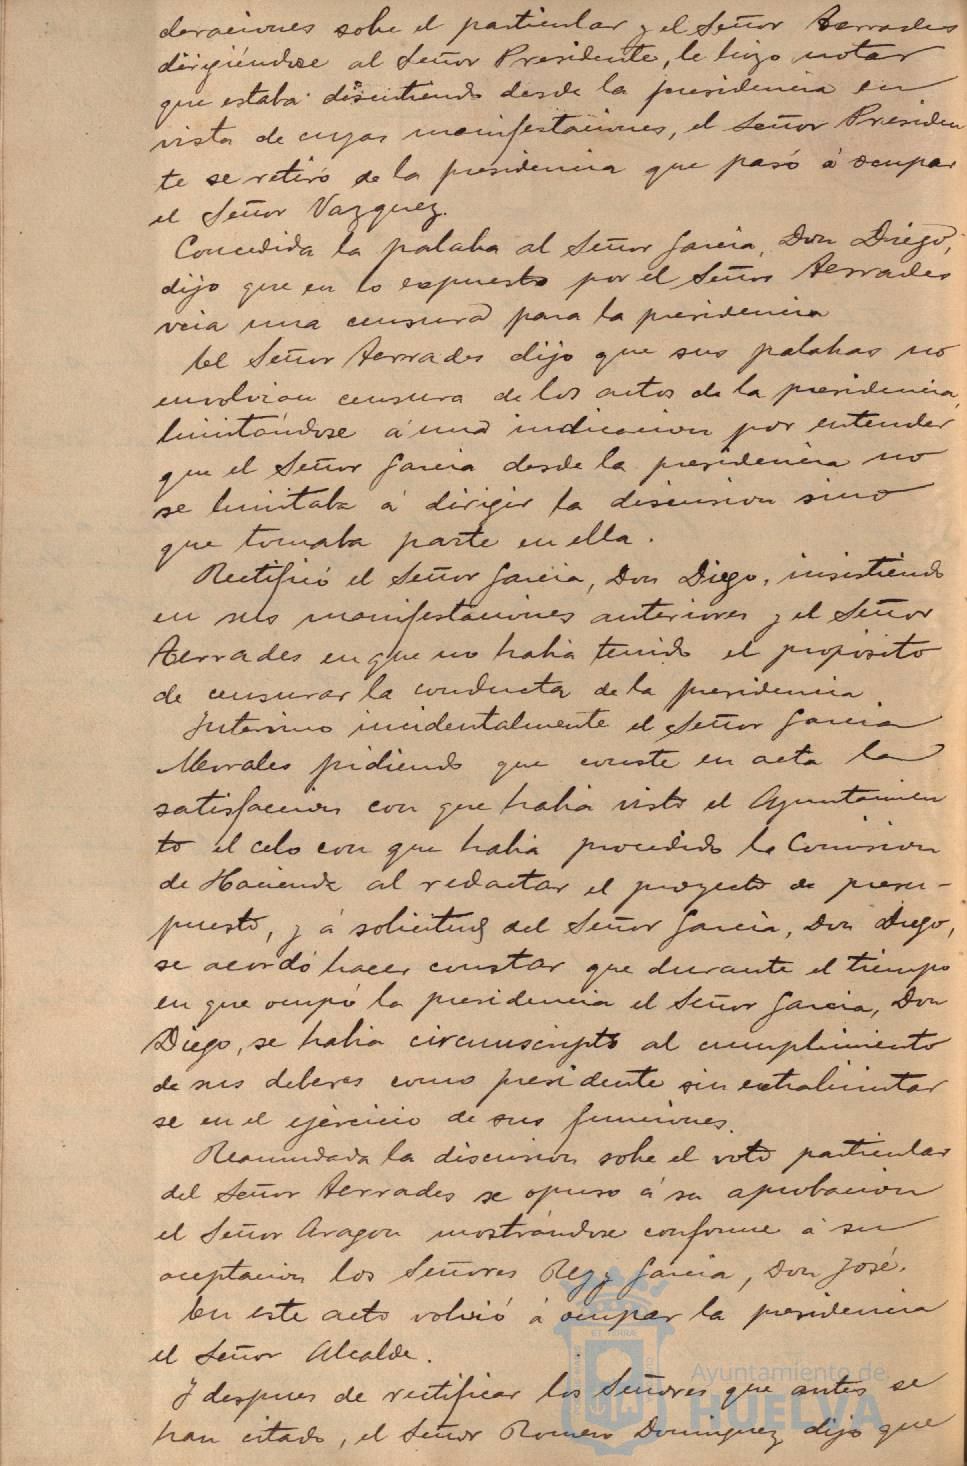 deraciones sobre el particular y el Señor Terrades
dirigiéndose al Señor Presidente, le hizo notar
que estaba discutiendo desde la presidencia en
vista de cuyas manifestaciones, el Señor Presiden
te se retiró de la presidencia que pasó á ocupar
el Señor Vazquez.
Concedida la palabra al Señor Garcia, Don Diego,
dijo que en lo expuesto por el Señor Terrades
veia una censura para la presidencia
El Señor Terrades dijo que sus palabras no
envolvian censura de los actos de la presidencia,
limitándose á una indicacion por entender
que el Señor Garcia desde la presidencia no
se limitaba á dirigir la discusion sino
que tomaba parte en ella.
Rectificó el Señor Garcia, Don Diego, insistiendo
en sus manifestaciones anteriores y el Señor
Terrades en que no habia tenido el propósito
de censurar la conducta de la presidencia
Intervino incidentalmente el Señor Garcia
Morales pidiendo que conste en acta la
satisfaccion con que habia visto el Ayuntamien
to el celo con que habia procedido la Comision
de Hacienda al redactar el proyecto de presu-
puesto, y á solicitud del Señor Garcia, Don Diego,
se acordó hacer constar que durante el tiempo
en que ocupó la presidencia el Señor Garcia, Don
Diego, se habia circunscripto al cumplimiento
de sus deberes como presidente sin extralimitar
se en el ejercicio de sus funciones.
Reanudada la discusion sobre el voto particular
del Señor Terrades se opuso á su aprobacion
el Señor Aragon mostrándose conforme á su
aceptacion los Señores Rey y Garcia, Don José.
En este acto volvió á ocupar la presidencia
el Señor Alcalde.
Y despues de rectificar los Señores que antes se
han citado, el Señor Romero Dominguez dijo que
Ayuntamiento de
HUELVA